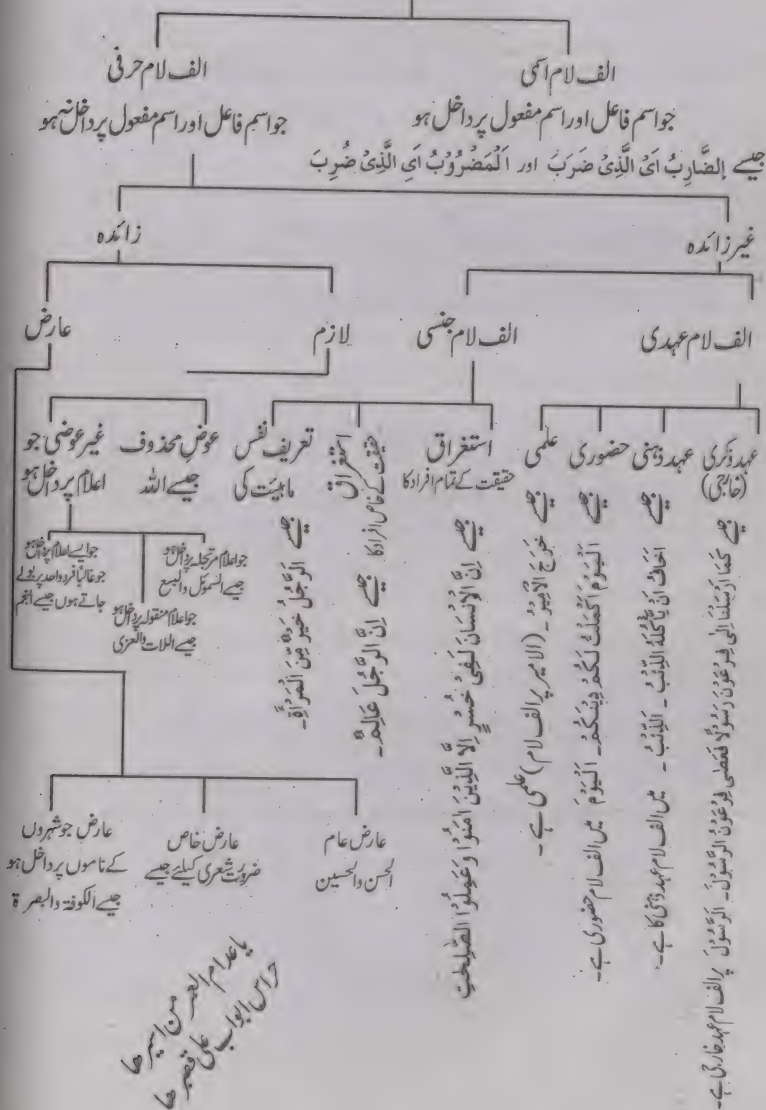 الف لام اسمی
جو اسم فاعل اور اسم مفعول پر داخل ہو
جیسے اِلضَّارِبُ اَیْ الَّذِیْ ضَرَبَ اور اَلْمَضْرُوْبُ اَیِ الَّذِیْ ضُرِبَ
الف لام حرفی
جو اسم فاعل اور اسم مفعول پر داخل نہ ہو
غیر زائدہ
زائدہ
الف لام عہدی
الف لام جنسی
لازم
عارض
عہد ذکری
(خارجی)
جیسے كَمَا اَرْسَلْنَا اِلٰى فِرْعَوْنَ رَسُوْلًا فَعَصٰى فِرْعَوْنُ الرَّسُوْلَ۔ اَلرَّسُوْلَ پر الف لام عہد خارجی ہے۔
عہد ذہنی
جیسے اَخَافُ اَنْ يَّأْكُلَهُ الذِّئْبُ۔ اَلذِّئْبُ۔ میں الف لام عہد ذہنی کا ہے۔
حضوری
جیسے اَلْيَوْمَ اَكْمَلْتُ لَكُمْ دِيْنَكُمْ۔ اَلْيَوْمَ میں الف لام حضوری ہے۔
علمی
جیسے خَرَجَ الْاَمِيْرُ۔ (الامیر پر الف لام) علمی ہے۔
استغراق
حقیقت کے تمام افراد کا
جیسے اِنَّ الْاِنْسَانَ لَفِىْ خُسْرٍ اِلَّا الَّذِيْنَ اٰمَنُوْا وَعَمِلُوا الصّٰلِحٰتِ
استغراق
حقیقت کے خاص افراد کا
جیسے اِنَّ الرَّجُلَ عَالِمٌ۔
تعریف نفس
ماہیّت کی
جیسے اَلرَّجُلُ خَيْرٌ مِّنَ الْمَرْاَةِ۔
عوض محذوف
جیسے اللہ
غیر عوضی جو
اعلام پر داخل ہو
جو اعلام مرتجلہ پر داخل ہو
جیسے السموئل والیسع
جو اعلام منقولہ پر داخل ہو
جیسے اللات والعزی
جو ایسے اعلام پر داخل ہو
جو غالباً فرد واحد پر بولے
جاتے ہوں جیسے النجم
عارض عام
الحسن والحسین
عارض خاص
ضرورت شعری کیلئے جیسے
عارض جو شہروں
کے ناموں پر داخل ہو
جیسے الکوفۃ والبصرۃ
باعد ام العمر من اسیرھا
حراس ابواب علی قصرھا